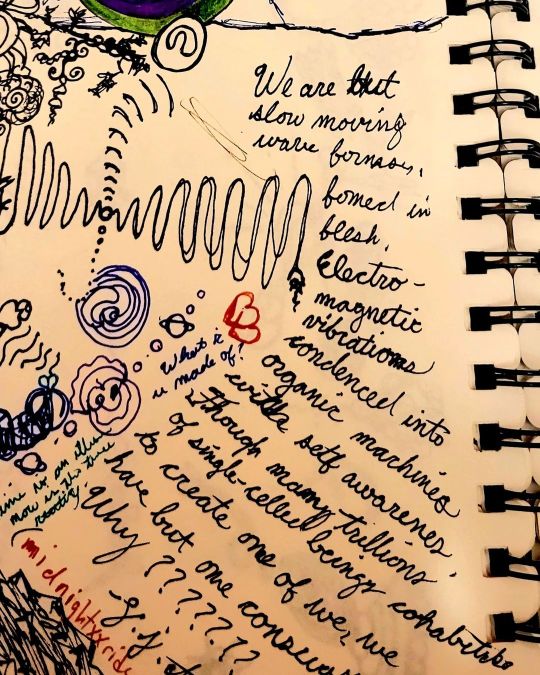 We are but
slow moving
wave
bomed in
blesh.
Electro-
magnetic
vibrations
condenced into
organic machines
with self awarenes
Though many trillions
of single-celled beings cohabitate
to create one of we, we
have but one
Why ???????
What is
it made of?
now is the
midnightxxrid